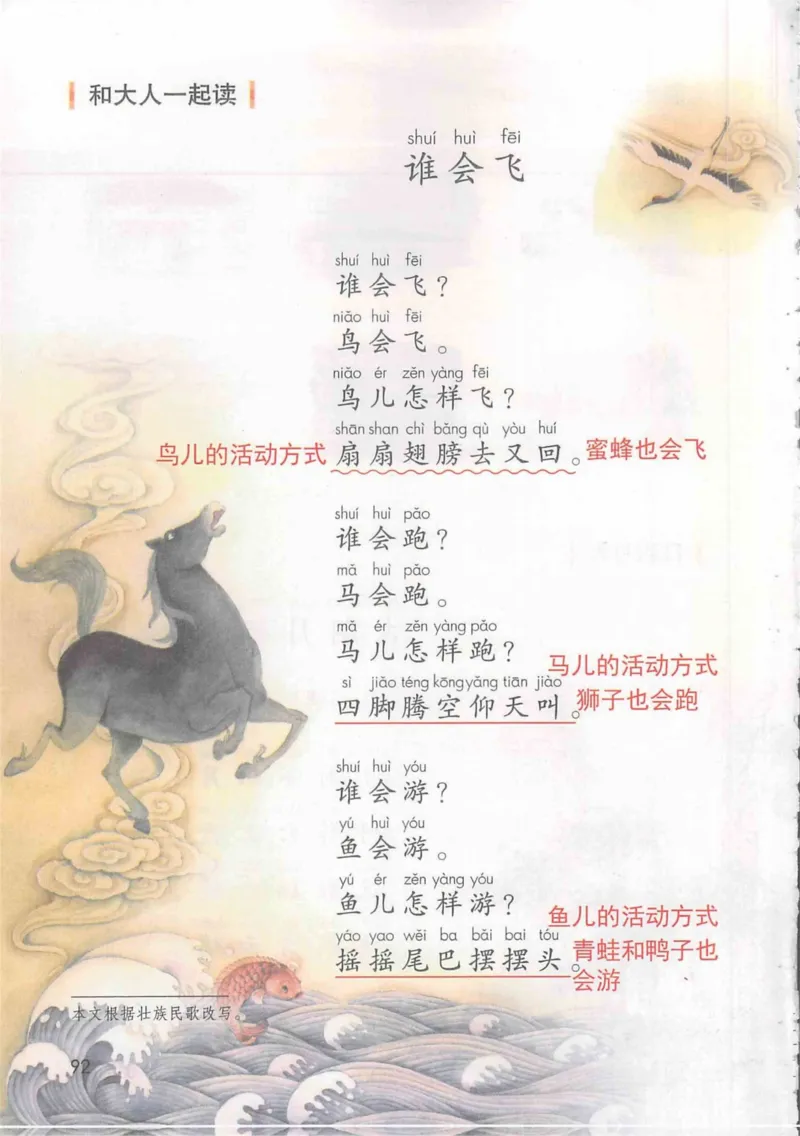 和大人一起读
shuí huì fēi
谁会飞
shuí huì fēi
谁会飞？
niǎo huì fēi
鸟会飞。
niǎo ér zěn yàng fēi
鸟儿怎样飞？
shān shan chì bǎng qù yòu huí
鸟儿的活动方式 扇扇翅膀去又回。 蜜蜂也会飞
shuí huì pǎo
谁会跑？
mǎ huì pǎo
马会跑。
mǎ ér zěn yàng pǎo
马儿怎样跑？ 马儿的活动方式
sì jiǎo téng kōng yǎng tiān jiào
四脚腾空仰天叫。 狮子也会跑
shuí huì yóu
谁会游？
yú huì yóu
鱼会游。
yú ér zěn yàng yóu
鱼儿怎样游？ 鱼儿的活动方式
yáo yao wěi ba bǎi bai tóu
摇摇尾巴摆摆头。 青蛙和鸭子也
会游
本文根据壮族民歌改写。
92